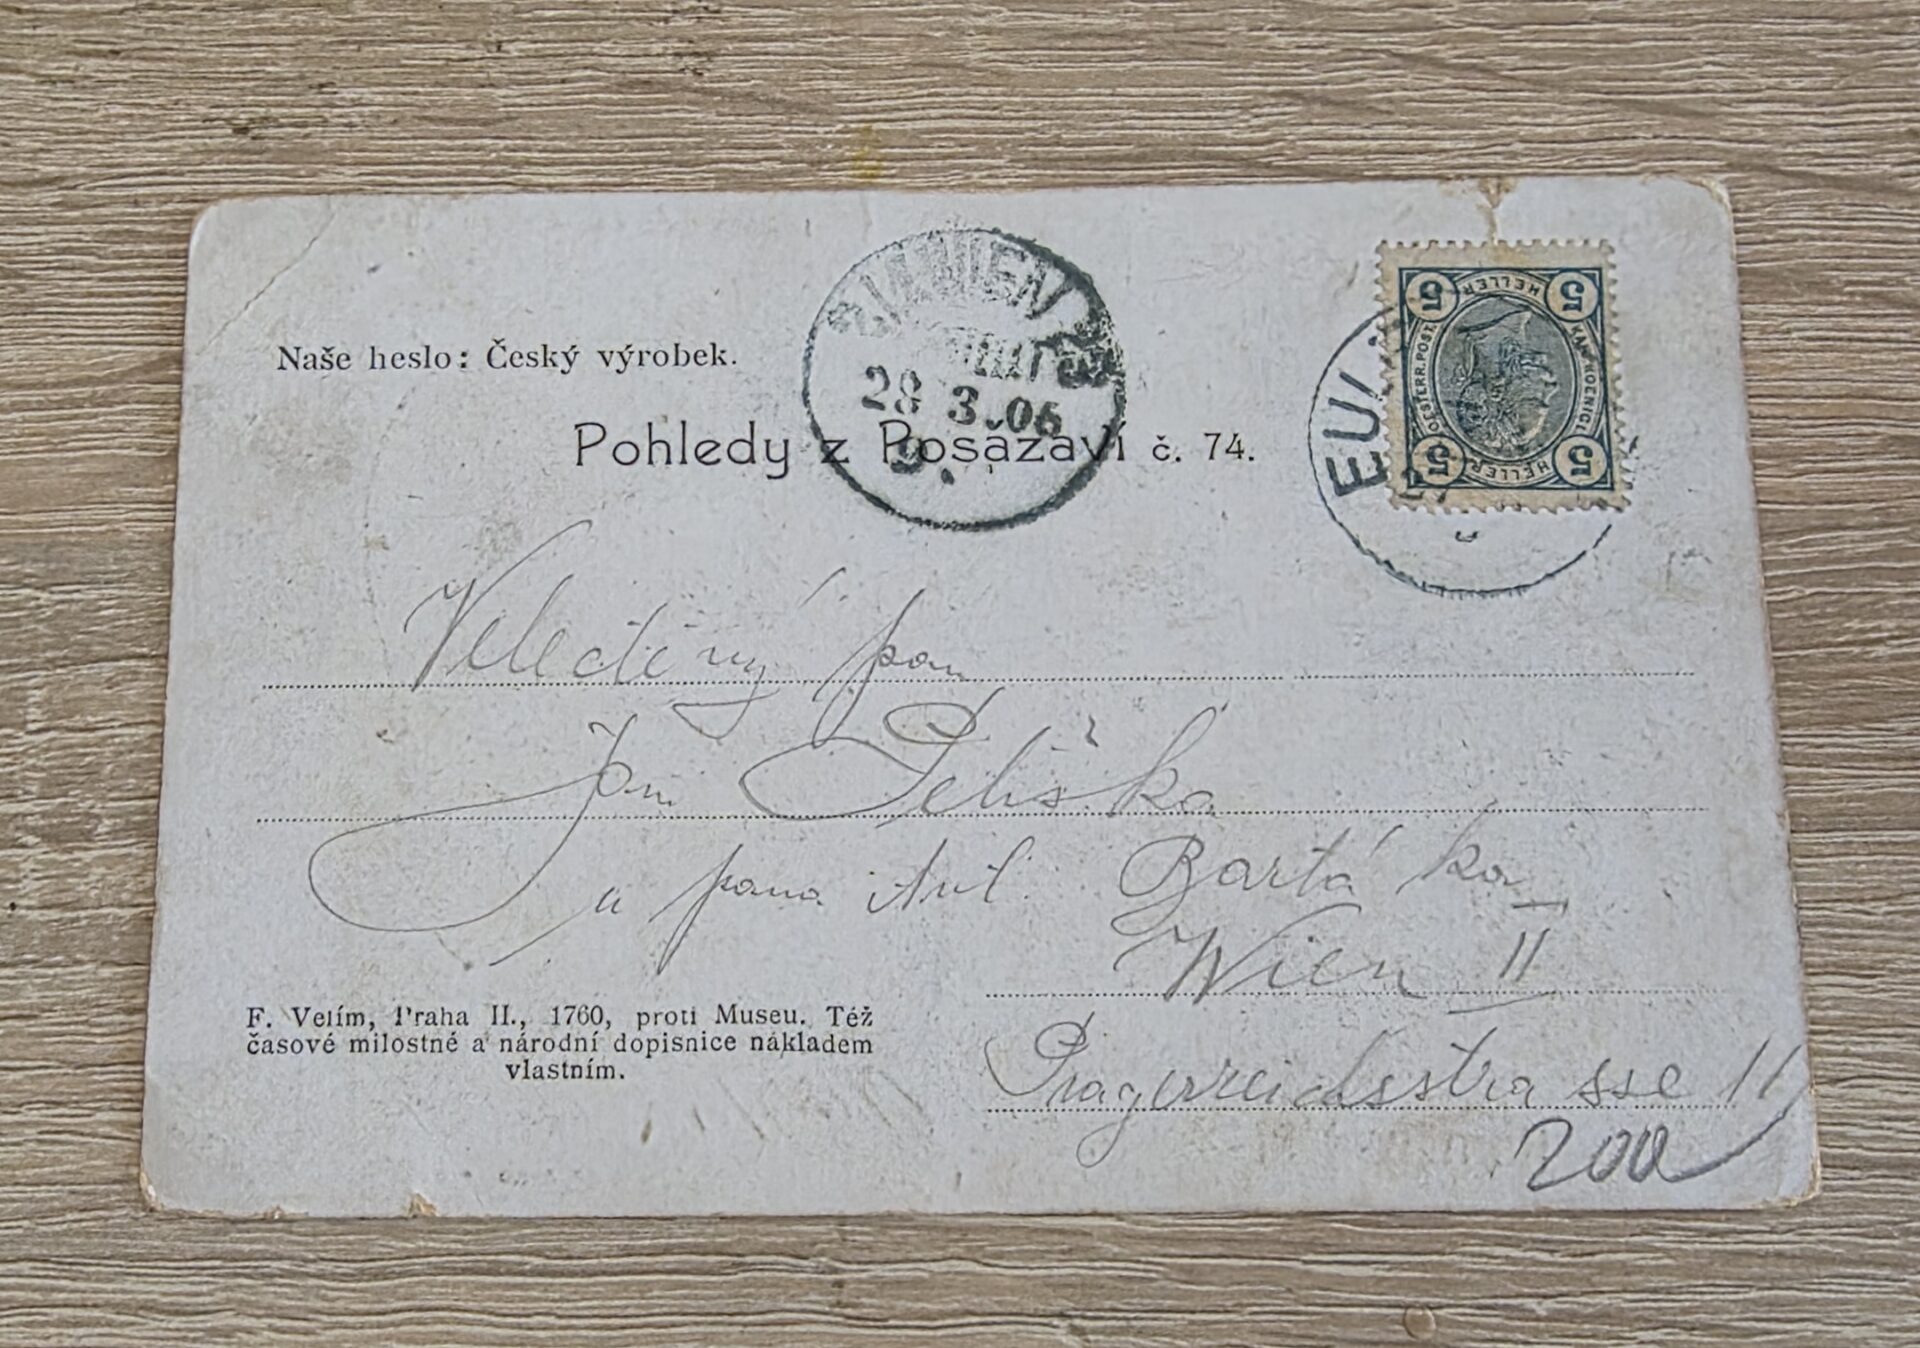 Naše heslo: Český výrobek.
Pohledy z Posázaví č. 74.
WIEN
28 3.06
EU
5 HELLER 5
KAIS. KOENIGL.
OESTERR. POST.
5 HELLER 5
Veledůstojný pan
Jan Peliška
u pana Ant. Bartáka
Wien II
Pragerreichsstrasse 11
200
F. Velím, Praha II., 1760, proti Museu. Též
časové milostné a národní dopisnice nákladem
vlastním.